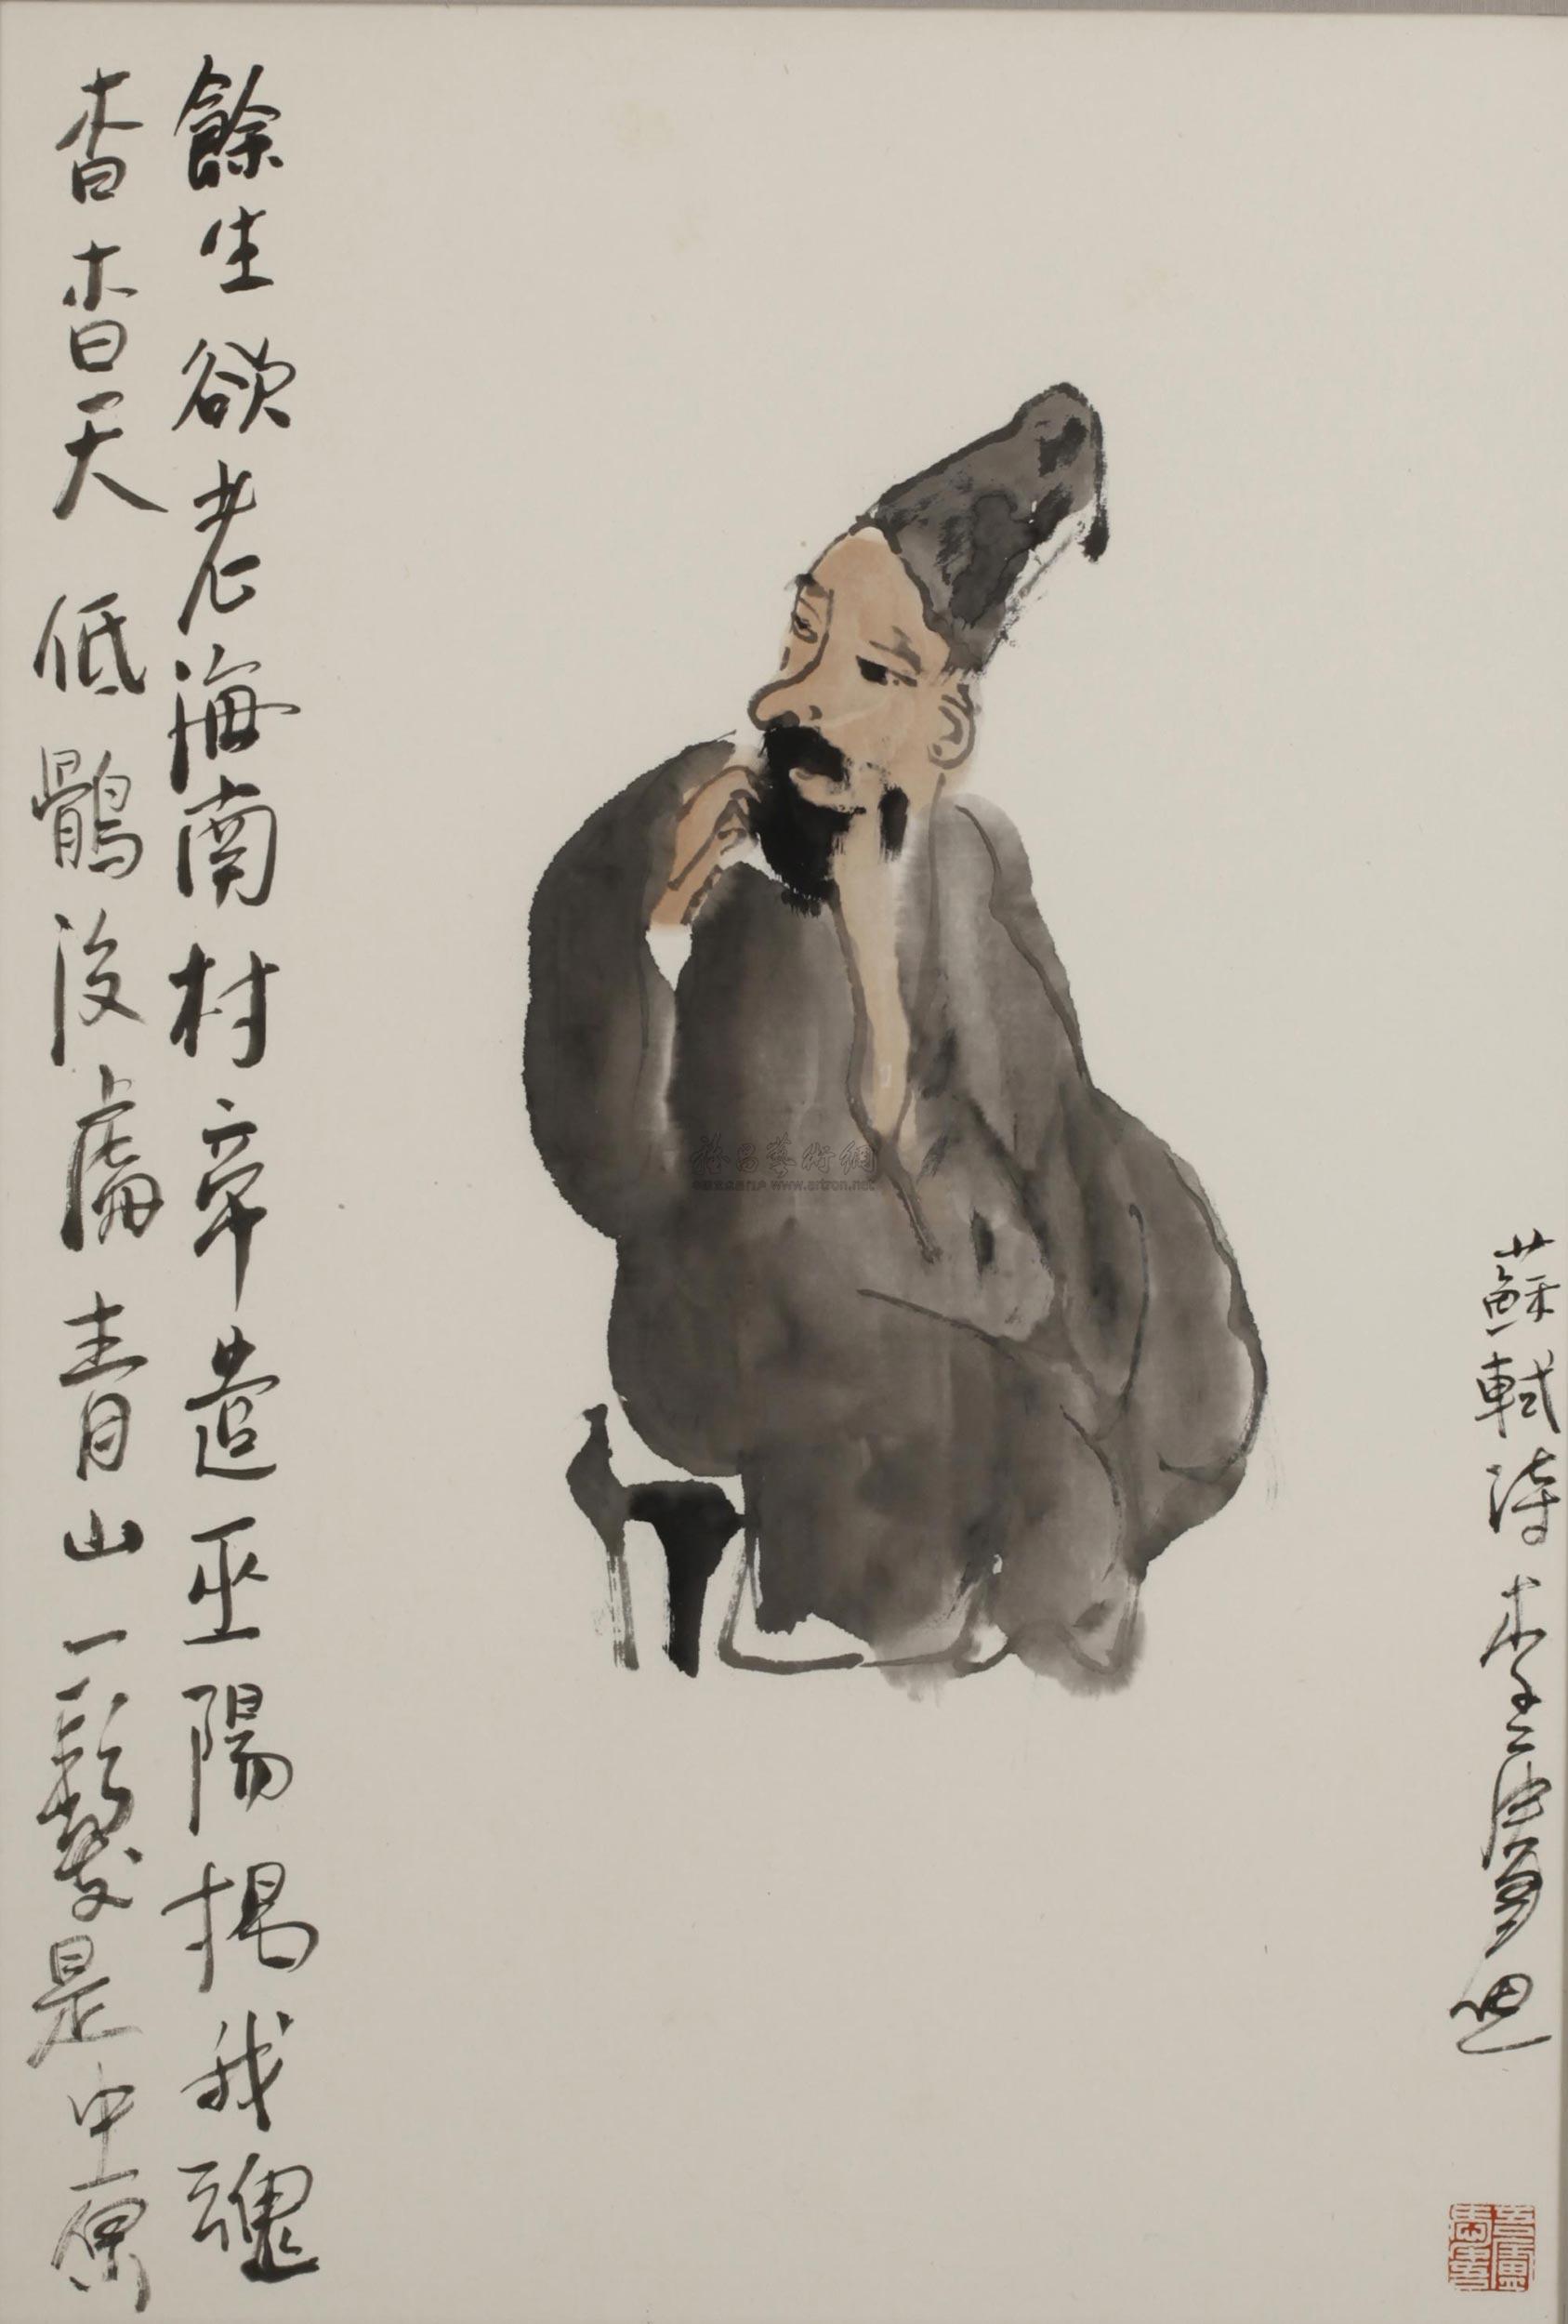 餘生欲老海南村帝遣巫陽招我魂
杳杳天低鶻没處青山一髮是中原
蘇軾詩李
雅昌藝術網
www.artron.net